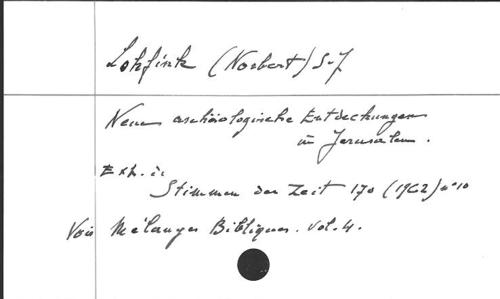 Lohfink (Norbert) S.J
Neue archäologische Entdeckungen
in Jerusalem.
Ext. in
Stimmen der Zeit 170 (1962) n° 10
Voir Mélanges Bibliques. Vol. 4.